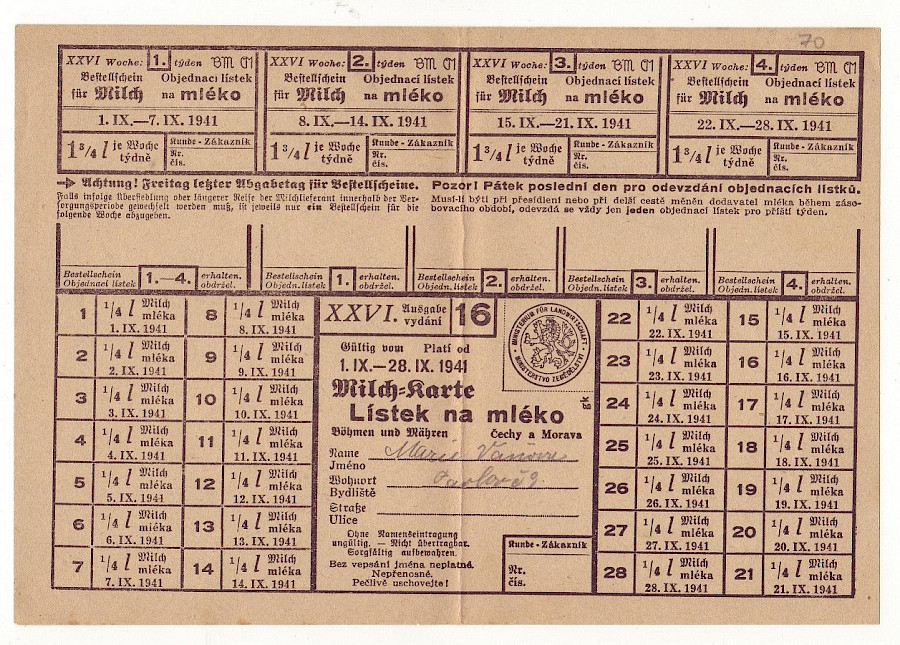 70
XXVI Woche: 1. týden BM ČM
Bestellschein Objednací lístek
für Milch na mléko
1. IX.—7. IX. 1941
1 3/4 l je Woche týdně
Kunde - Zákazník
Nr.
čís.
XXVI Woche: 2. týden BM ČM
Bestellschein Objednací lístek
für Milch na mléko
8. IX.—14. IX. 1941
1 3/4 l je Woche týdně
Kunde - Zákazník
Nr.
čís.
XXVI Woche: 3. týden BM ČM
Bestellschein Objednací lístek
für Milch na mléko
15. IX.—21. IX. 1941
1 3/4 l je Woche týdně
Kunde - Zákazník
Nr.
čís.
XXVI Woche: 4. týden BM ČM
Bestellschein Objednací lístek
für Milch na mléko
22. IX.—28. IX. 1941
1 3/4 l je Woche týdně
Kunde - Zákazník
Nr.
čís.
Achtung! Freitag letzter Abgabetag für Bestellscheine.
Falls infolge Übersiedlung oder längerer Reise der Milchlieferant innerhalb der Ver-
sorgungsperiode gewechselt werden muß, ist jeweils nur ein Bestellschein für die
folgende Woche abzugeben.
Pozor! Pátek poslední den pro odevzdání objednacích lístků.
Musí-li býti při přesídlení nebo při delší cestě měněn dodavatel mléka během záso-
bovacího období, odevzdá se vždy jen jeden objednací lístek pro příští týden.
Bestellschein 1.—4. erhalten.
Objednací lístek obdržel.
Bestellschein 1. erhalten.
Objedn. lístek obdržel.
Bestellschein 2. erhalten.
Objedn. lístek obdržel.
Bestellschein 3. erhalten.
Objedn. lístek obdržel.
Bestellschein 4. erhalten.
Objedn. lístek obdržel.
1 1/4 l Milch mléka 1. IX. 1941
8 1/4 l Milch mléka 8. IX. 1941
2 1/4 l Milch mléka 2. IX. 1941
9 1/4 l Milch mléka 9. IX. 1941
3 1/4 l Milch mléka 3. IX. 1941
10 1/4 l Milch mléka 10. IX. 1941
4 1/4 l Milch mléka 4. IX. 1941
11 1/4 l Milch mléka 11. IX. 1941
5 1/4 l Milch mléka 5. IX. 1941
12 1/4 l Milch mléka 12. IX. 1941
6 1/4 l Milch mléka 6. IX. 1941
13 1/4 l Milch mléka 13. IX. 1941
7 1/4 l Milch mléka 7. IX. 1941
14 1/4 l Milch mléka 14. IX. 1941
XXVI. Ausgabe vydání 16
MINISTERIUM FÜR LANDWIRTSCHAFT
MINISTERSTVO ZEMĚDĚLSTVÍ
Gültig vom Platí od
1. IX.—28. IX. 1941
Milch-Karte
Lístek na mléko
Böhmen und Mähren Čechy a Morava
Name Marie
Jméno
Wohnort
Bydliště
Straße
Ulice
Ohne Namenseintragung
ungültig. — Nicht übertragbar.
Sorgfältig aufbewahren.
Bez vepsání jména neplatné.
Nepřenosné.
Pečlivě uschovejte!
Kunde - Zákazník
Nr.
čís.
22 1/4 l Milch mléka 22. IX. 1941
15 1/4 l Milch mléka 15. IX. 1941
23 1/4 l Milch mléka 23. IX. 1941
16 1/4 l Milch mléka 16. IX. 1941
24 1/4 l Milch mléka 24. IX. 1941
17 1/4 l Milch mléka 17. IX. 1941
25 1/4 l Milch mléka 25. IX. 1941
18 1/4 l Milch mléka 18. IX. 1941
26 1/4 l Milch mléka 26. IX. 1941
19 1/4 l Milch mléka 19. IX. 1941
27 1/4 l Milch mléka 27. IX. 1941
20 1/4 l Milch mléka 20. IX. 1941
28 1/4 l Milch mléka 28. IX. 1941
21 1/4 l Milch mléka 21. IX. 1941